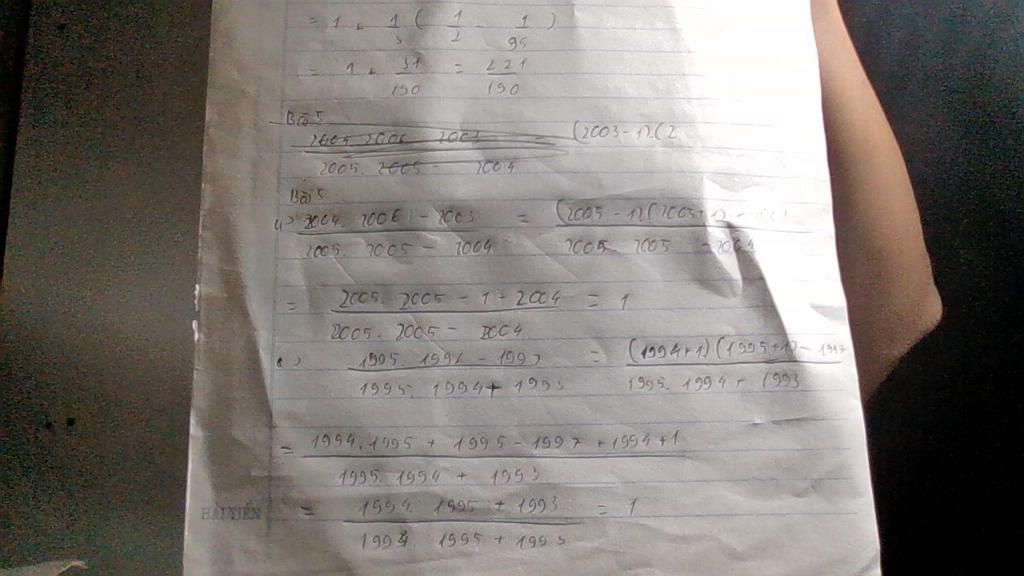 = 1 + 1/3 ( 1/2 - 1/95 )
= 1 + 31/190 = 221/190
Bài 5
2005. 2006 - 2003 / 2005. 2005 - 2004 = (2003 - 1)(2
Bài 5
2004. 2006 - 2003 / 2005. 2005 - 2004 = (2005 - 1)(2005+1) - 2003 / 2005 2005 - 2004
= 2005. 2005 - 1 - 2004 / 2005. 2005 - 2004 = 1
c) 1995. 1996 - 1997 / 1995. 1994 + 1993 = (1994+1)(1995+1) - 1997 / 1995. 1994 + 1993
= 1994. 1995 + 1995 - 1997 + 1994 + 1 / 1995. 1994 + 1993
= 1994. 1995 + 1993 / 1994 1995 + 1993 = 1
HẢI TIẾN